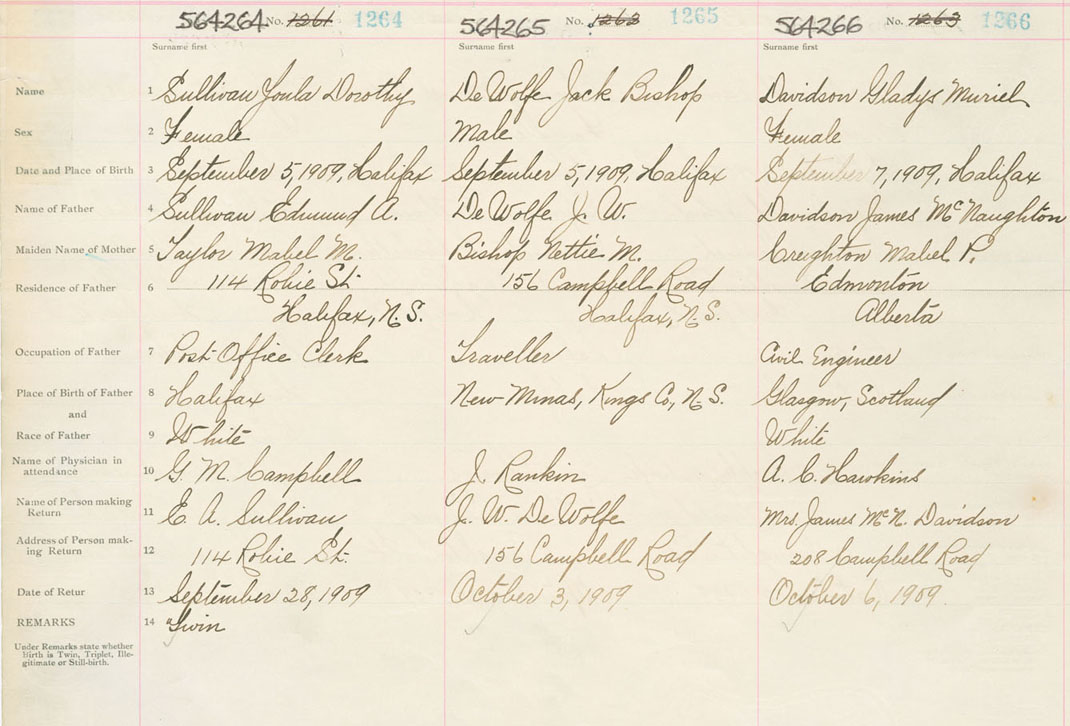 564264 No. 1261 1264 564265 No. 1262 1265 564266 No. 1263 1266
Surname first Surname first Surname first
Name 1 Sullivan Youla Dorothy De Wolfe Jack Bishop Davidson Gladys Muriel
Sex 2 Female Male Female
Date and Place of Birth 3 September 5, 1909, Halifax September 5, 1909, Halifax September 7, 1909, Halifax
Name of Father 4 Sullivan Edmund A. De Wolfe J. W. Davidson James McNaughton
Maiden Name of Mother 5 Taylor Mabel M. Bishop Nettie M. Creighton Mabel P.
Residence of Father 6 114 Robie St. 156 Campbell Road Edmonton
Halifax, N.S. Halifax, N.S. Alberta
Occupation of Father 7 Post-Office Clerk Traveller Civil Engineer
Place of Birth of Father 8 Halifax New-Minas, Kings Co, N.S. Glasgow, Scotland
and
Race of Father 9 White White
Name of Physician in
attendance 10 G. M. Campbell J. Rankin A. C. Hawkins
Name of Person making
Return 11 E. A. Sullivan J. W. De Wolfe Mrs. James McN. Davidson
Address of Person mak-
ing Return 12 114 Robie St. 156 Campbell Road 208 Campbell Road
Date of Retur 13 September 28, 1909 October 3, 1909 October 6, 1909.
REMARKS 14 Twin
Under Remarks state whether
Birth is Twin, Triplet, Ille-
gitimate or Still-birth.